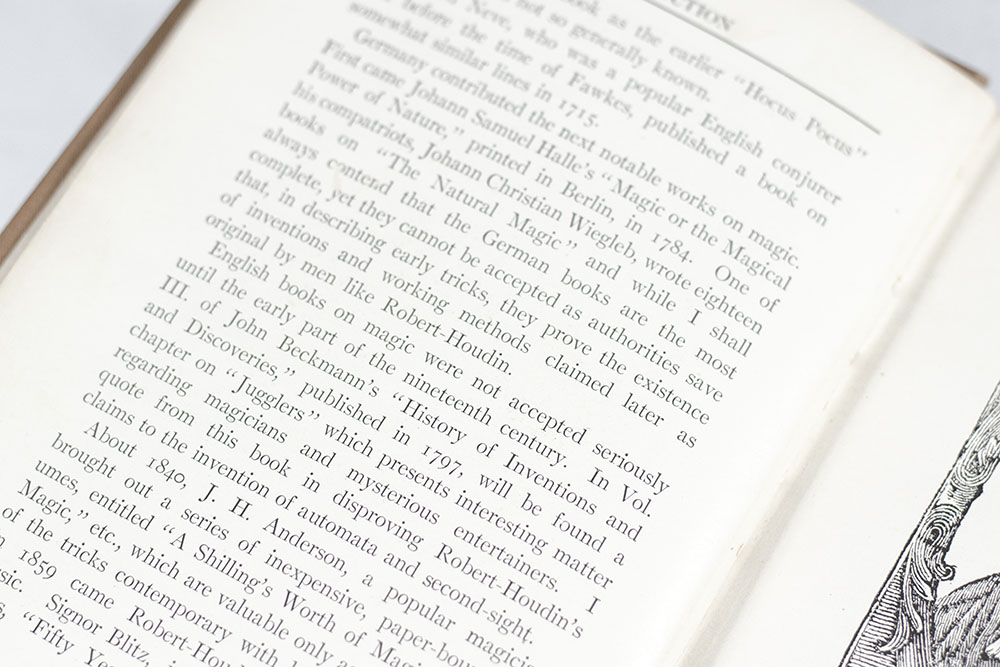 CTION
ook as the earlier "Hocus Pocus"
not so generally known.
Neve, who was a popular English conjurer
before the time of Fawkes, published a book on
somewhat similar lines in 1715.
Germany contributed the next notable works on magic.
First came Johann Samuel Halle's "Magic or the Magical
Power of Nature," printed in Berlin, in 1784. One of
his compatriots, Johann Christian Wiegleb, wrote eighteen
books on "The Natural Magic" and while I shall
always contend that the German books are the most
complete, yet they cannot be accepted as authorities save
that, in describing early tricks, they prove the existence
of inventions and working methods claimed later as
original by men like Robert-Houdin.
English books on magic were not accepted seriously
until the early part of the nineteenth century. In Vol.
III. of John Beckmann's "History of Inventions and
and Discoveries," published in 1797, will be found a
chapter on "Jugglers" which presents interesting matter
regarding magicians and mysterious entertainers. I
quote from this book in disproving Robert-Houdin's
claims to the invention of automata and second-sight.
About 1840, J. H. Anderson, a popular magic
brought out a series of inexpensive, paper-bou
umes, entitled "A Shilling's Worth of Magi
Magic," etc., which are valuable only a
of the tricks contemporary with
1859 came Robert-Ho
sic. Signor Blitz,
"Fifty Ye